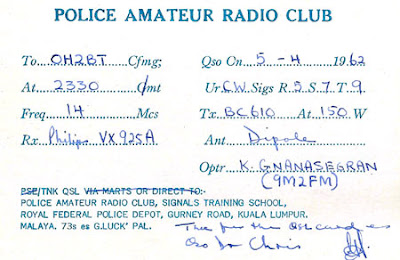 POLICE AMATEUR RADIO CLUB
To......OH2BT......Cfmg; Qso On......5 - 4......1962
At......2330......Gmt Ur CW Sigs R.5.S.7.T.9
Freq......14......Mcs Tx BC610 At 150 W
Rx Philips VX925A Ant Dipole
Optr K. GNANASEGRAN
(9M2FM)
PSE/TNK QSL VIA MARTS OR DIRECT TO:-
POLICE AMATEUR RADIO CLUB, SIGNALS TRAINING SCHOOL,
ROYAL FEDERAL POLICE DEPOT, GURNEY ROAD, KUALA LUMPUR.
MALAYA. 73s es G.LUCK' PAL.
for the QSL card es
Qso Dr Chris